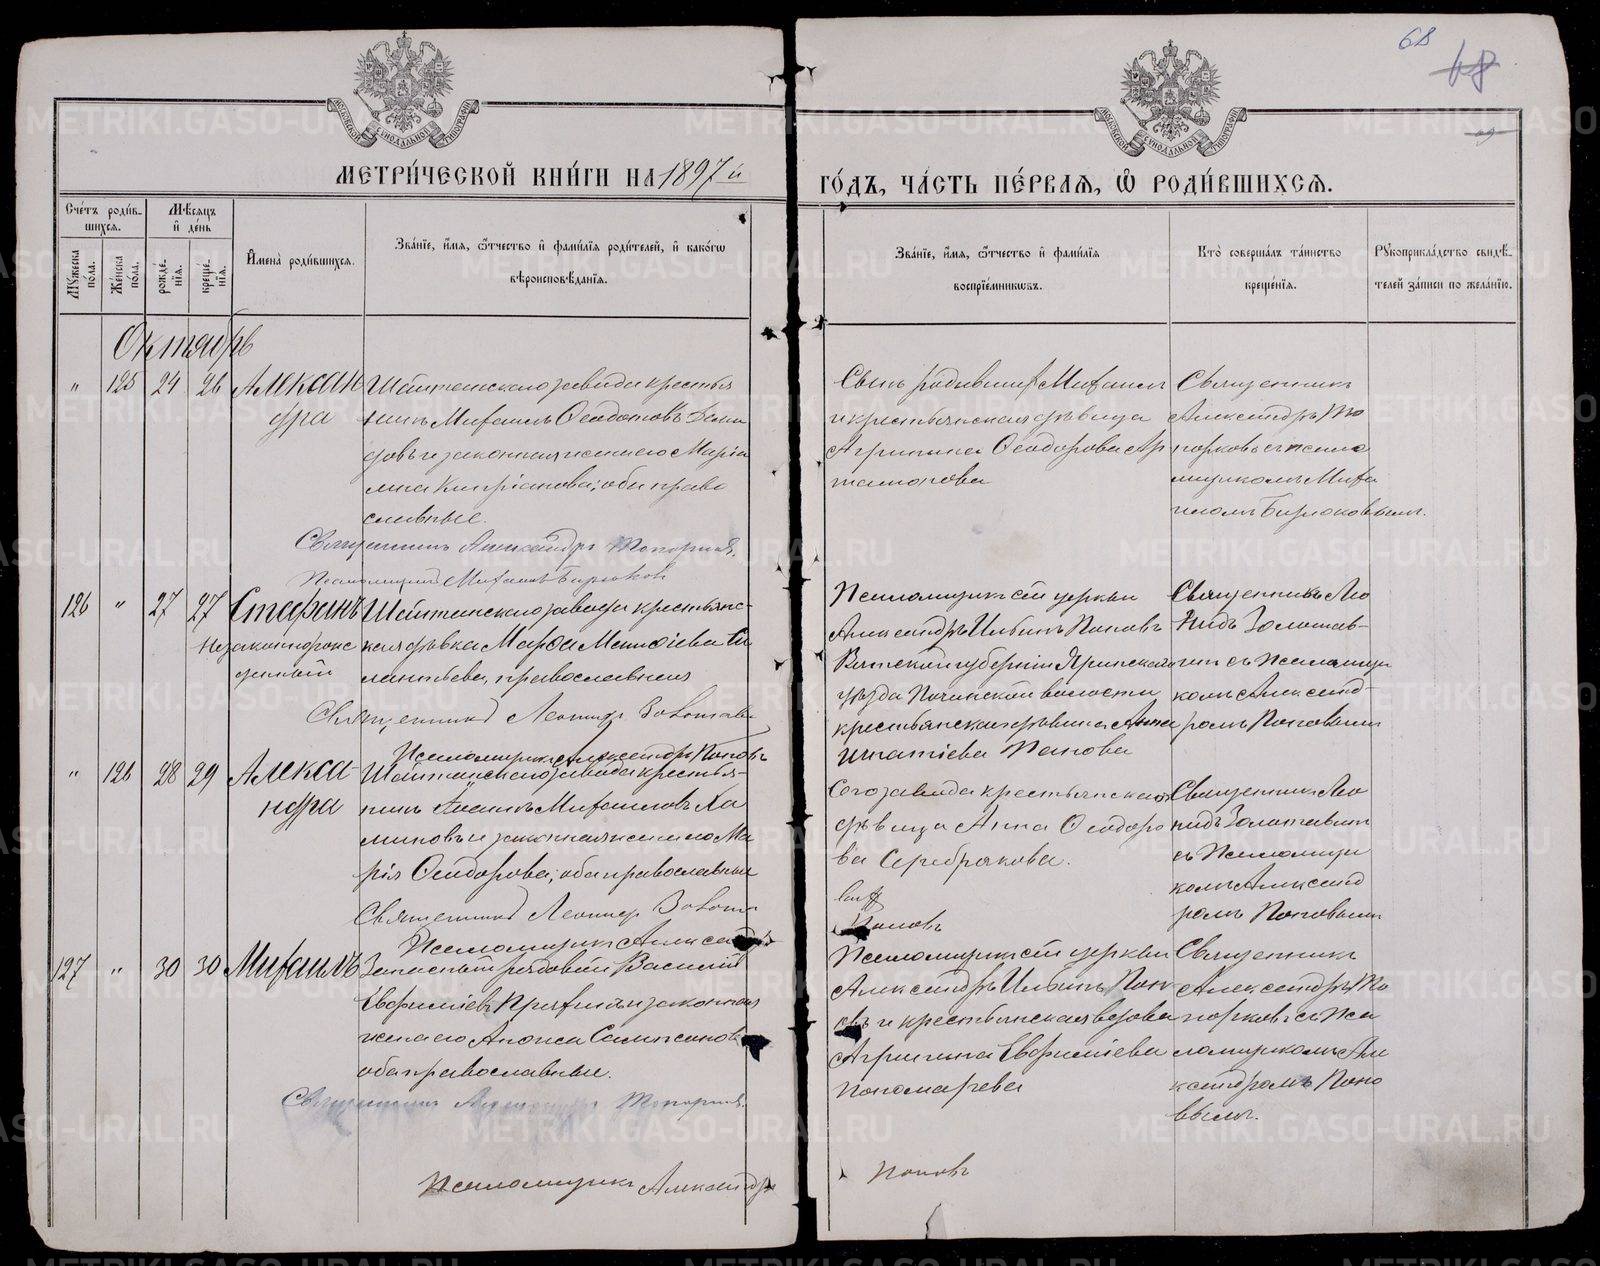 68
48
МЕТРИ́ЧЕСКОЙ КНИ́ГИ НА 1897 й
ГО́ДЪ, ЧА́СТЬ ПЕ́РВАѦ, Ѿ РОДИ́ВШИХСѦ.
Счéтъ роди́вшихсѧ.
Мѣ́сѧцъ и҆ дéнь
Мꙋ́жеска пола.
Же́нска пола.
рождéнїѧ.
крещéнїѧ.
И҆мена̀ роди́вшихсѧ.
Зва́нїе, и҆́мѧ, ѻ҆́тчество и҆ фами́лїѧ роди́телей, и҆ како́гѡ
вѣроисповѣ́данїѧ.
Зва́нїе, и҆́мѧ, ѻ҆́тчество и҆ фами́лїѧ
воспрїéмникѡвъ.
Кто̀ соверша́лъ та́инство
крещéнїѧ.
Рꙋкоприкла́дство свидѣ́-
телей за́писи по жела́нїю.
Октябрь
" 125 24 26 Алексан
дра
Шайтанскаго завода крестья
нинъ Михаилъ Ѳеодотовъ Деми
довъ и законная жена его Марiа
мна Кипріанова; оба право
славные.
Священникъ Александръ Топорковъ.
Псаломщикъ Михаилъ Бирюковъ
Сынъ родившей Михаилъ
и крестьянская дѣвица
Агрипина Ѳеодорова Ар
тамонова
Священникъ
Александръ То
порковъ съ псало
мщикомъ Миха
иломъ Бирюковымъ.
126 " 27 27 Стефанъ
Незаконнорож
денный
Шайтанскаго завода крестьянс-
кая дѣвка Марѳа Меѳодіева Си
лантьева, православная
Священникъ Леонидъ Золотавинъ
Псаломщикъ Александръ Поповъ
Псаломщикъ сей церкви
Александръ Ильинъ Поповъ
Вятской губерніи Яранскаго
уѣзда Починской волости
крестьянская дѣвица Анна
Игнатіева Попова
Священникъ Лео
нидъ Золотав-
инъ съ псаломщи
комъ Александ-
ромъ Поповымъ
" 126 28 29 Алекса-
ндра
Шайтанскаго завода крестья-
нинъ Іоаннъ Михаиловъ Ха
миновъ и законная жена его Ма
рія Ѳеодорова; оба православные
Священникъ Леонидъ Золота
винъ
Псаломщикъ Александръ
Поповъ
Сего завода крестьянская
дѣвица Анна Ѳеодоро
ва Серебрякова.
Священникъ Лео
нидъ Золотавинъ
съ псаломщи
комъ Александ
ромъ Поповымъ
127 " 30 30 Михаилъ
Запасный рядовой Василій
Евфиміевъ и законная
жена его Анѳиса Сампсонова
оба православные.
Священникъ Александръ Топорковъ.
Псаломщикъ Александръ
Поповъ
Псаломщикъ сей церкви
Александръ Ильинъ Попо
въ и крестьянская вдова
Агрипина Евфиміева
Пономарева
Священникъ
Александръ То
порковъ съ пса
ломщикомъ Але
ксандромъ Попо
вымъ.
METRIKI.GASO-URAL.RU